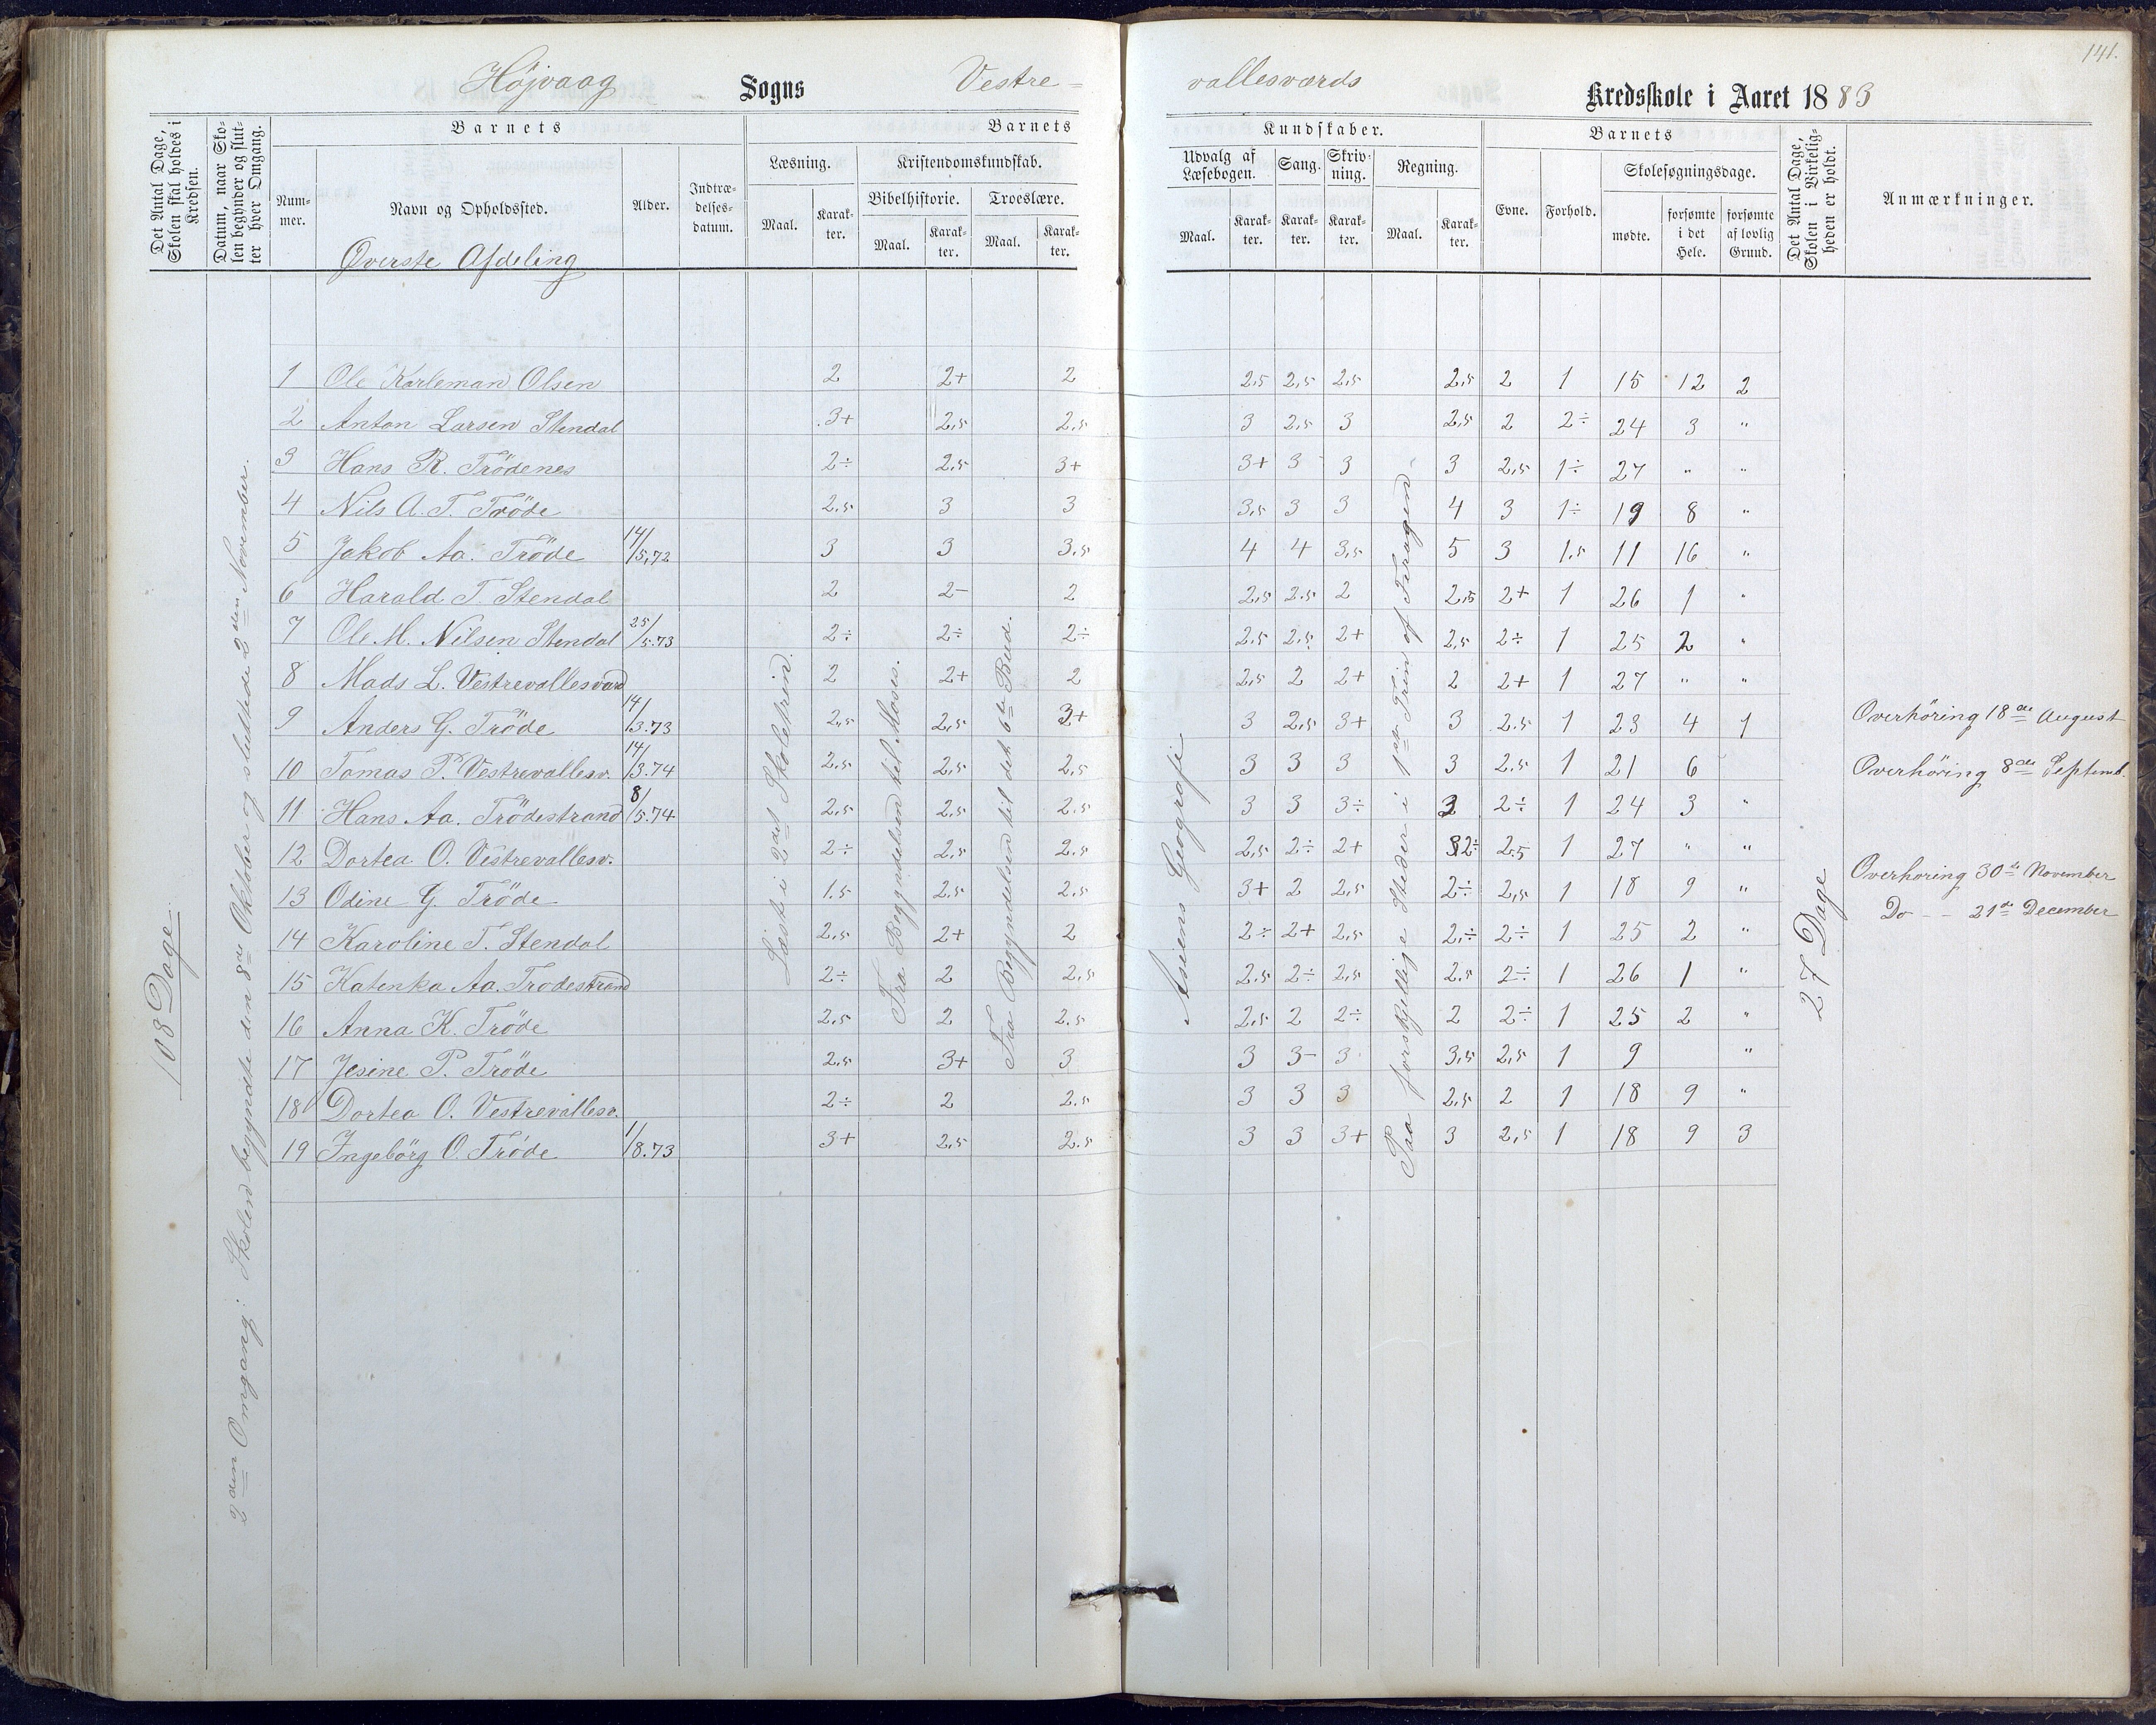 141.
Højvaag Sogns Vestre= vallesværds Kredsskole i Aaret 1883
Det Antal Dage, Skolen skal holdes i Kredsen.
Datum, naar Skolen begynder og slutter hver Omgang.
Barnets
Nummer.
Navn og Opholdssted.
Alder.
Indtrædelsesdatum.
Barnets Kundskaber.
Læsning.
Maal. Karakter.
Kristendomskundskab.
Bibelhistorie. Troeslære.
Maal. Karakter. Maal. Karakter.
Udvalg af Læsebogen. Sang. Skrivning. Regning.
Maal. Karakter. Karakter. Karakter. Maal. Karakter.
Barnets
Evne. Forhold. Skolesøgningsdage.
mødte. forsømte i det Hele. forsømte af lovlig Grund.
Det Antal Dage, Skolen i Virkeligheden er holdt.
Anmærkninger.
Øverste Afdeling
1 Ole Karleman Olsen 2 2+ 2 2,5 2,5 2,5 2,5 2 1 15 12 2
2 Anton Larsen Stendal 3+ 2,5 2,5 3 2,5 3 2,5 2 2÷ 24 3 "
3 Hans R. Trödenes 2÷ 2,5 3+ 3+ 3- 3 3 2,5 1÷ 27 " "
4 Nils A. T. Tröde 2,5 3 3 3,5 3 3 4 3 1÷ 19 8 "
5 Jakob Aa. Tröde 14/5,72 3 3 3,5 4 4 3,5 5 3 1,5 11 16 "
6 Harald T. Stendal 2 2- 2 2,5 2,5 2 2,5 2+ 1 26 1 "
7 Ole M. Nilsen Stendal 25/5.73 2÷ 2÷ 2÷ 2,5 2,5 2+ 2,5 2÷ 1 25 2 "
8 Mads L. Vestrevallesværd 2 2+ 2 2,5 2 2+ 2 2+ 1 27 " "
9 Anders G. Tröde 14/3.73 2,5 2,5 3+ 3 2,5 3+ 3 2.5 1 23 4 1
10 Tomas P. Vestrevallesv. 14/3.74 2,5 2,5 2,5 3 3 3 3 2.5 1 21 6
11 Hans Aa. Trödestrand 8/5.74 2,5 2,5 2.5 3 3 3÷ 3 2÷ 1 24 3 "
12 Dortea O. Vestrevallesv. 2÷ 2,5 2.5 2,5 2÷ 2+ 2÷ 2.5 1 27 " "
13 Odine G. Tröde 1.5 2,5 2,5 3+ 2 2,5 2÷ 2,5 1 18 9 "
14 Karoline T. Stendal 2,5 2+ 2 2÷ 2+ 2,5 2,÷ 2÷ 1 25 2 "
15 Katenka Aa. Trödestrand 2÷ 2 2,5 2,5 2÷ 2,5 2.5 2÷ 1 26 1 "
16 Anna K. Tröde 2,5 2 2.5 2,5 2 2÷ 2 2÷ 1 25 2 "
17 Jesine P. Tröde 2,5 3+ 3 3 3- 3 3,5 2,5 1 9 "
18 Dortea O. Vestrevallesv. 2÷ 2 2.5 3 3 3 2,5 2 1 18 9 "
19 Ingebörg O. Tröde 1/8.73 3+ 2,5 2.5 3 3 3+ 3 2,5 1 18 9 3
108 Dage
2den Omgang: Skolen begyndte den 8de Oktober og sluttede 2den November.
Læste i 2det Skoletrin.
Fra Begyndelsen til Moses.
Fra Begyndelsen til det 6te Bud.
Asiens Geografi
Paa forskjellige Steder i 1ste Trin af
27 Dage
Overhöring 18de August
Overhöring 8de Septemb.
Overhöring 30te November
Do - - 21de December